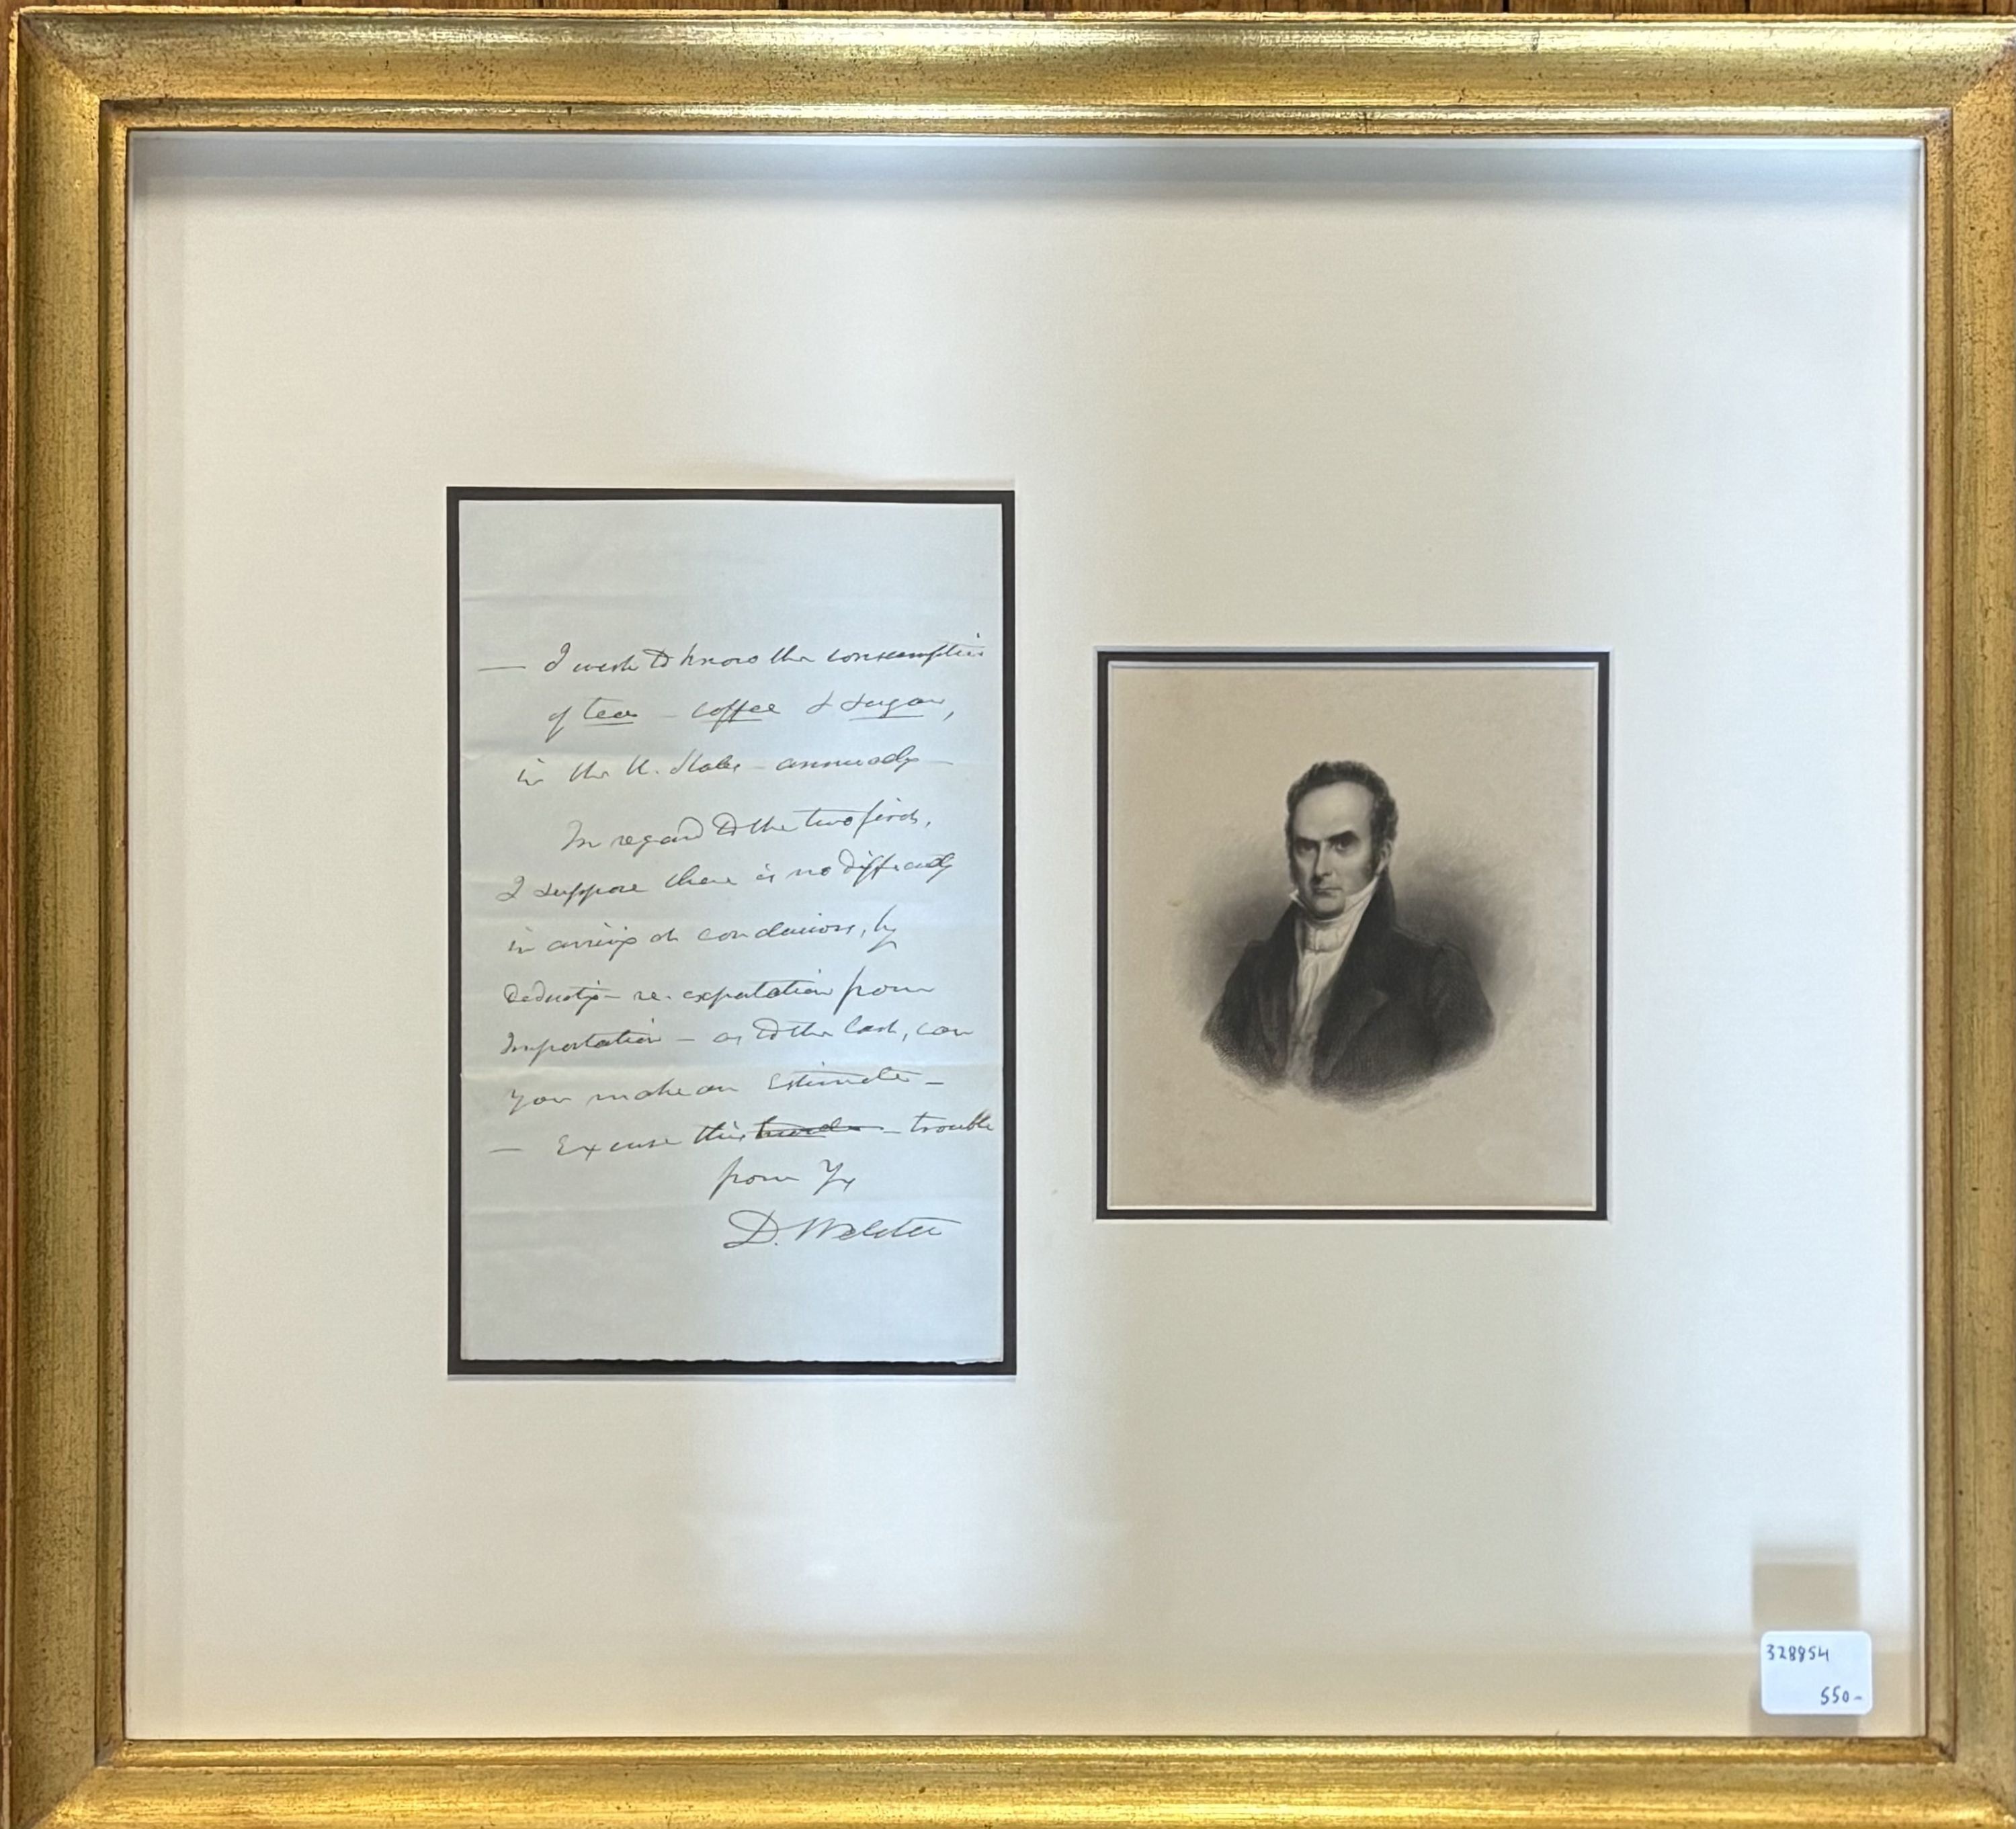 — I wish to know the consumption
of tea – coffee & sugar,
in the U. States – annually –
In regard to the two first,
I suppose there is no difficulty
in arriving at conclusions, by
deducting re-exportation from
Importation – as to the last, can
you make an Estimate –
— Excuse this – trouble
from Yr
D. Webster
328854
550-